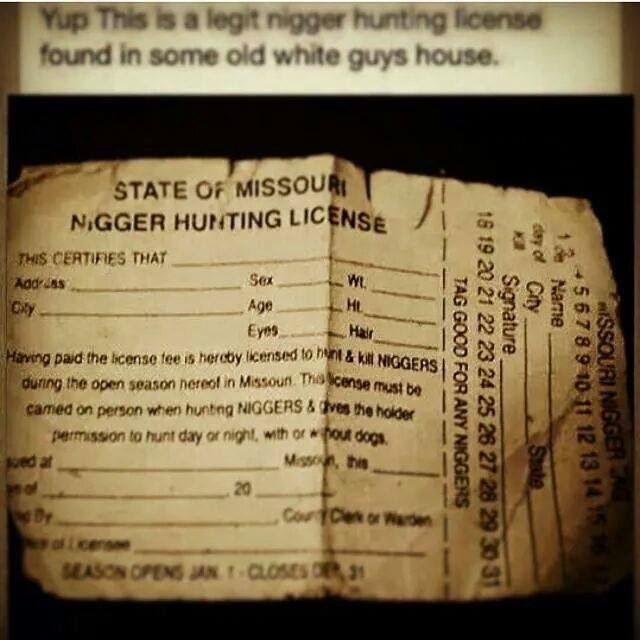 Yup This is a legit nigger hunting license
found in some old white guys house.
STATE OF MISSOURI
NIGGER HUNTING LICENSE
THIS CERTIFIES THAT
Address Sex Wt.
City Age Ht.
Eyes Hair
Having paid the license fee is hereby licensed to hunt & kill NIGGERS
during the open season hereof in Missouri. This license must be
carried on person when hunting NIGGERS & gives the holder
permission to hunt day or night, with or without dogs.
sued at Missouri, this
of 20
By County Clerk or Warden
of Licensee
SEASON OPENS JAN. 1 - CLOSES DEC. 31
MISSOURI NIGGER TAG
4 5 6 7 8 9 10 11 12 13 14 15 16
Name
City State
day of Kill Signature
18 19 20 21 22 23 24 25 26 27 28 29 30 31
TAG GOOD FOR ANY NIGGERS